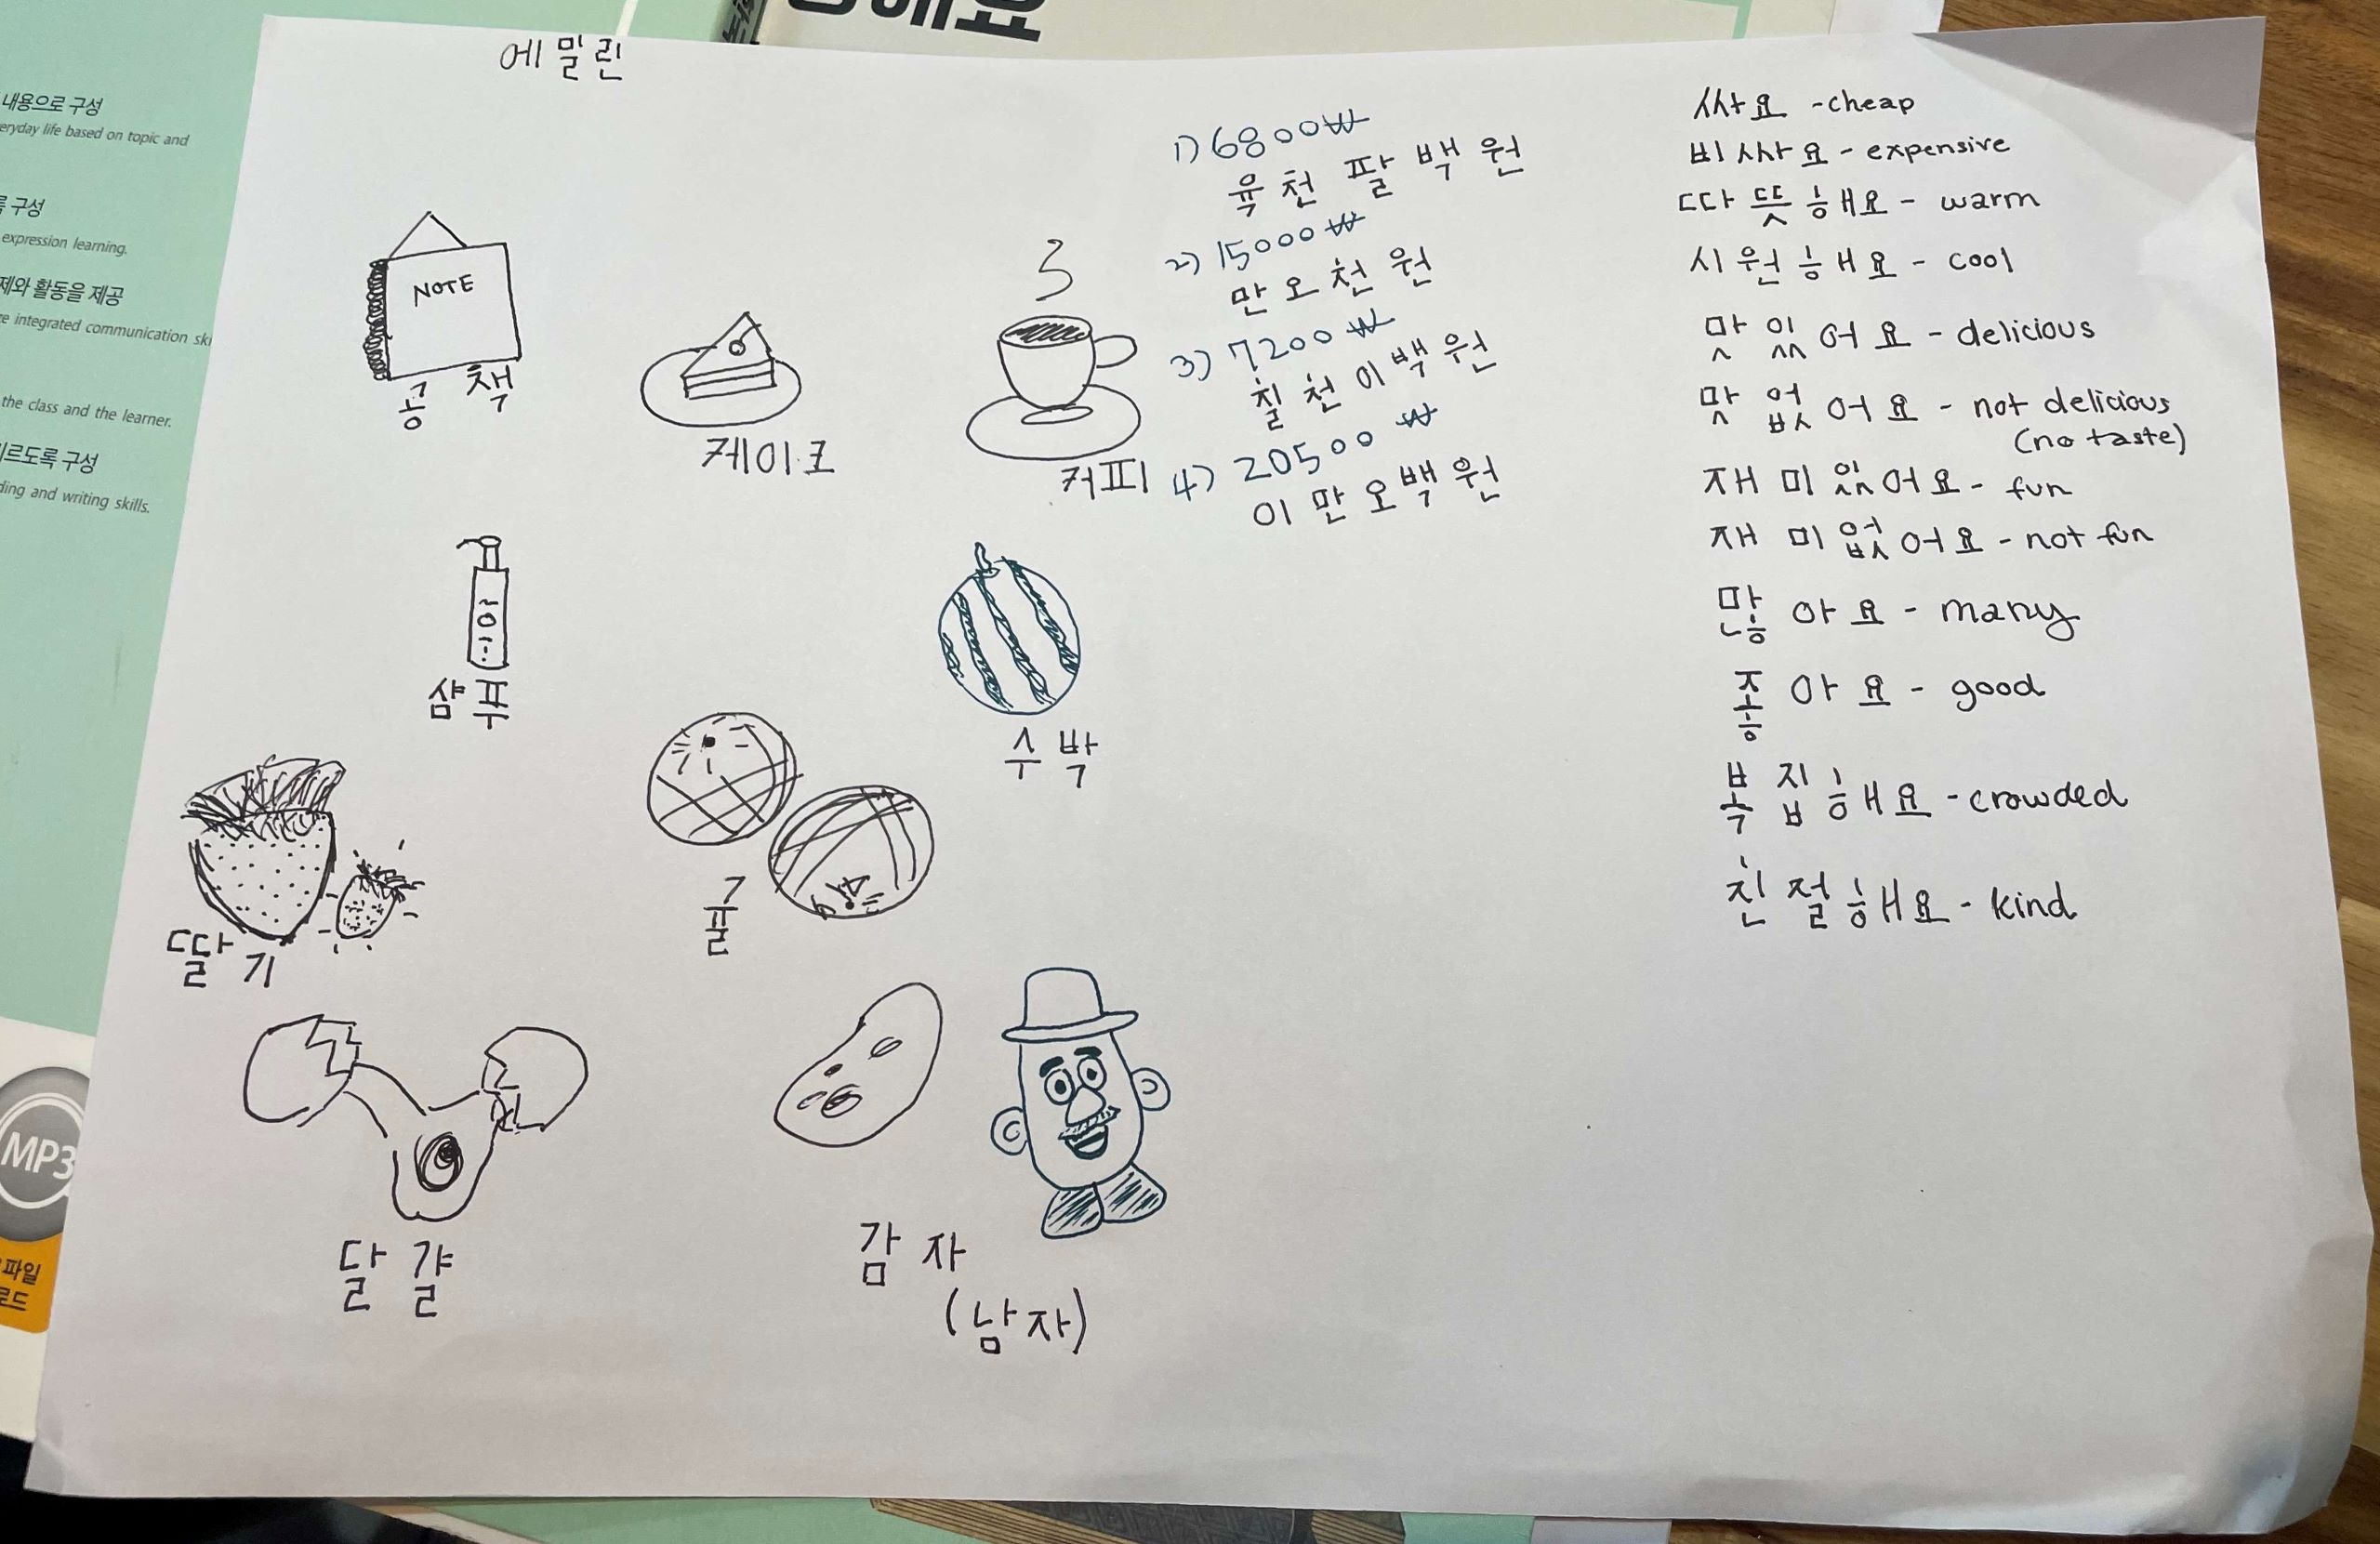 에밀린
NOTE
공책
케이크
커피
샴푸
수박
딸기
귤
달걀
감자
(남자)
1) 6800₩
육천 팔백 원
2) 15000₩
만오천원
3) 7200₩
칠천이백원
4) 20500₩
이만오백원
싸요 - cheap
비싸요 - expensive
따뜻해요 - warm
시원해요 - cool
맛있어요 - delicious
맛없어요 - not delicious
(no taste)
재미있어요 - fun
재미없어요 - not fun
많아요 - many
좋아요 - good
복잡해요 - crowded
친절해요 - kind
내용으로 구성
everyday life based on topic and
구성
expression learning.
제와 활동을 제공
integrated communication
the class and the learner.
기르도록 구성
ding and writing skills.
MP3
파일
로드
해요